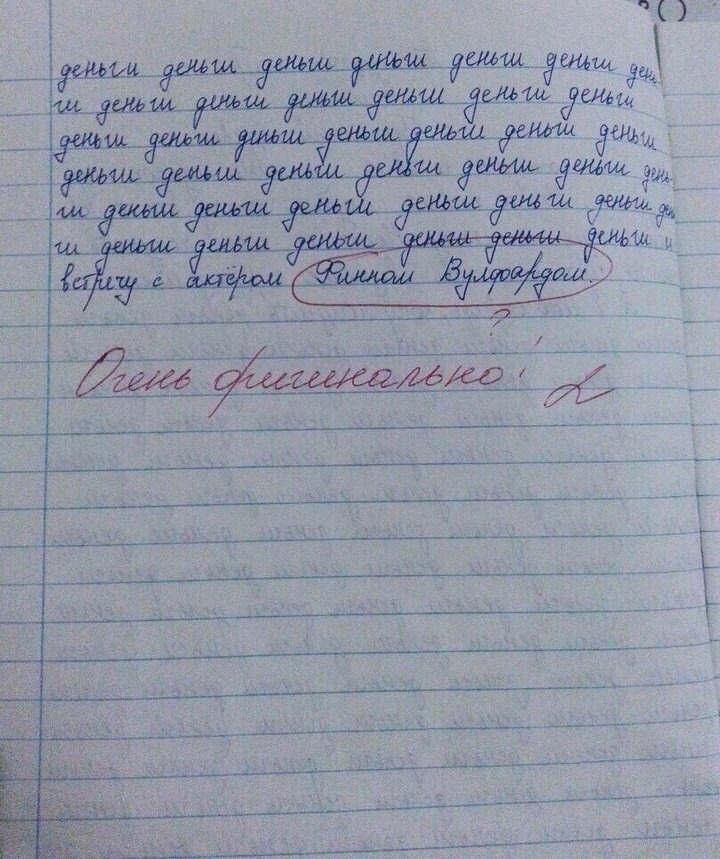 деньги деньги деньги деньги деньги деньги день
ги деньги деньги деньги деньги деньги деньги
деньги деньги деньги деньги деньги деньги деньги
деньги деньги деньги деньги деньги деньги день-
ги деньги деньги деньги деньги деньги деньги день
ги деньги деньги деньги деньги деньги деньги и
встречу с актёром Финном Вулфардом.
?
Очень оригинально! 2